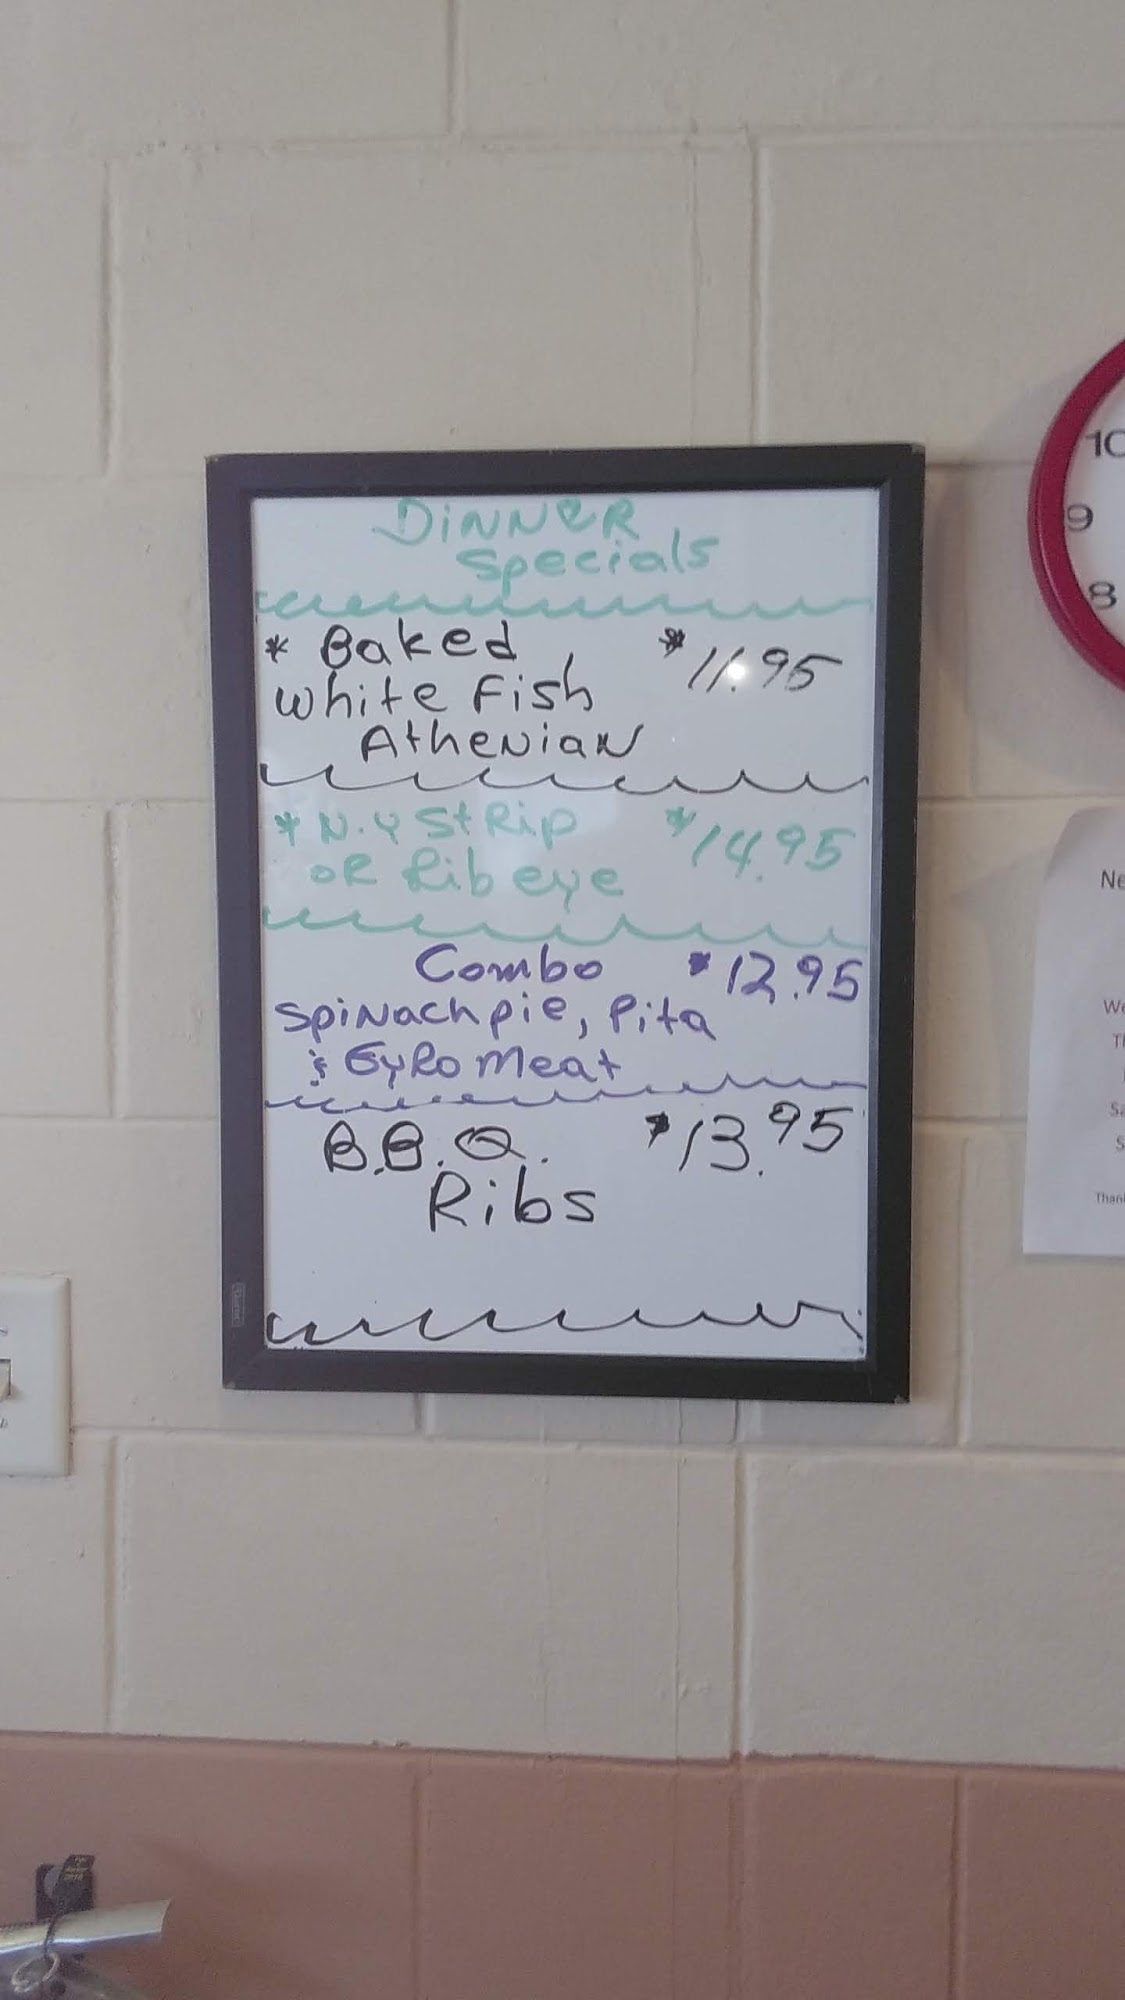 DINNER
Specials
* Baked $11.95
White Fish
Athenian
* N.Y Strip $14.95
OR Rib eye
Combo $12.95
Spinach pie, Pita
& Gyro Meat
B.B.Q. $13.95
Ribs
10
9
8
Ne
We
Th
Sa
S
Than